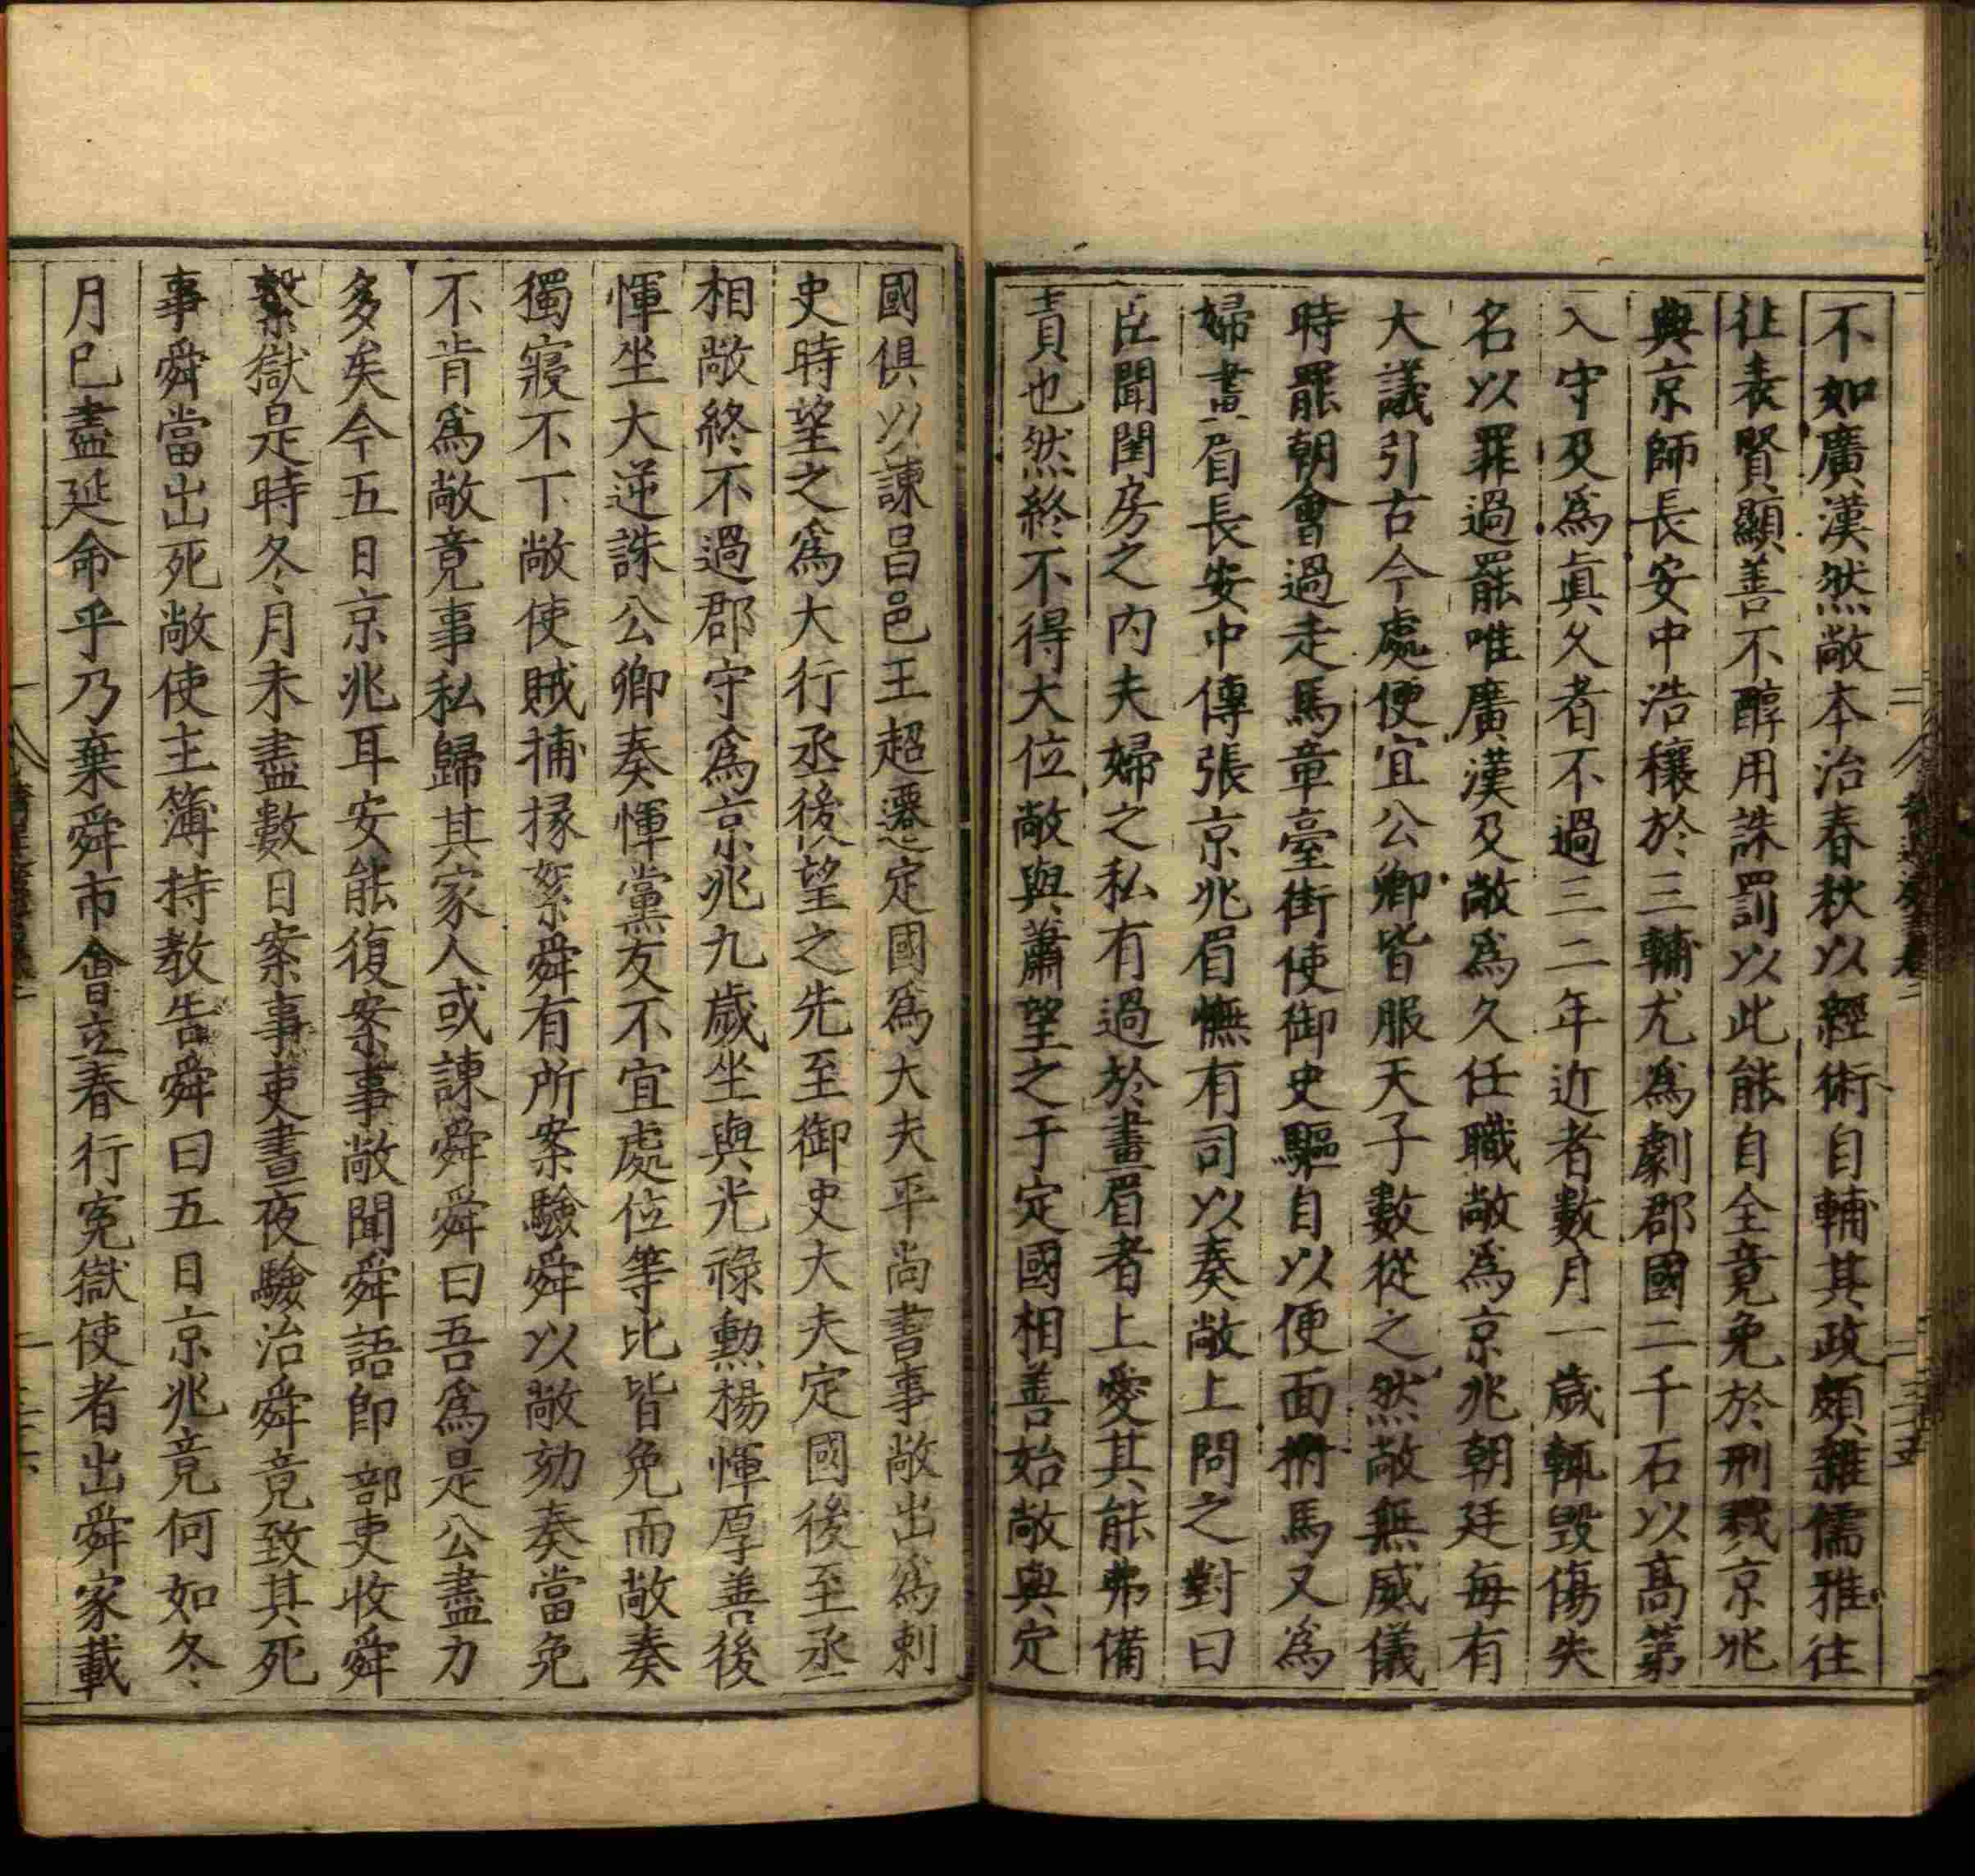 不如廣漢然敞本治春秋以經術自輔其政頗雜儒雅往
往表賢顯善不醇用誅罰以此能自全竟免於刑戮京兆
典京師長安中浩穰於三輔尤為劇郡國二千石以髙第
入守及為眞久者不過三二年近者數月一歲輒毀傷失
名以罪過罷唯廣漢及敞為久任職敞為京兆朝廷每有
大議引古今處便宜公卿皆服天子數從之然敞無威儀
時罷朝會過走馬章臺街使御史驅自以便面拊馬又為
婦畫眉長安中傳張京兆眉憮有司以奏敞上問之對曰
臣聞閨房之內夫婦之私有過於畫眉者上愛其能弗備
責也然終不得大位敞與蕭望之于定國相善始敞與定
國俱以諫昌邑王超遷定國為大夫平尚書事敞出為刺
史時望之為大行丞後望之先至御史大夫定國後至丞
相敞終不過郡守為京兆九歲坐與光祿勳楊惲厚善後
惲坐大逆誅公卿奏惲黨友不宜處位等比皆免而敞奏
獨寢不下敞使賊捕掾絮舜有所案驗舜以敞劾奏當免
不肯為敞竟事私歸其家人或諫舜舜曰吾為是公盡力
多矣今五日京兆耳安能復案事敞聞舜語即部吏收舜
繫獄是時冬月未盡數日案事吏晝夜驗治舜竟致其死
事舜當出死敞使主簿持教告舜曰五日京兆竟何如冬
月已盡延命乎乃棄舜市會立春行寃獄使者出舜家載